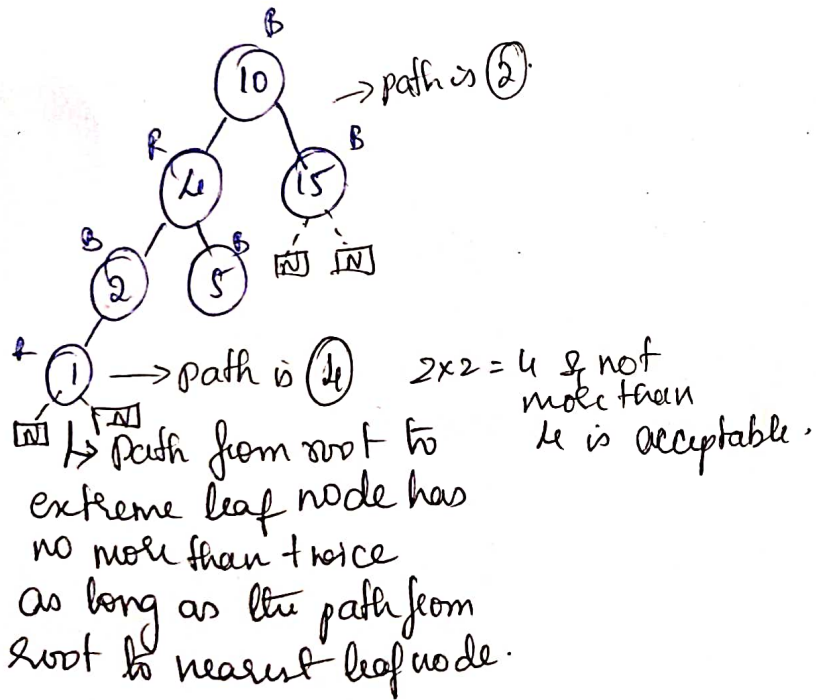 B
10
→ path is 2.
R
B
4
15
B
B
2
5
N N
R
1 → path is 4
2x2 = 4 & not
more than
4 is acceptable.
N N
↳ path from root to
extreme leaf node has
no more than twice
as long as the path from
root to nearest leaf node.